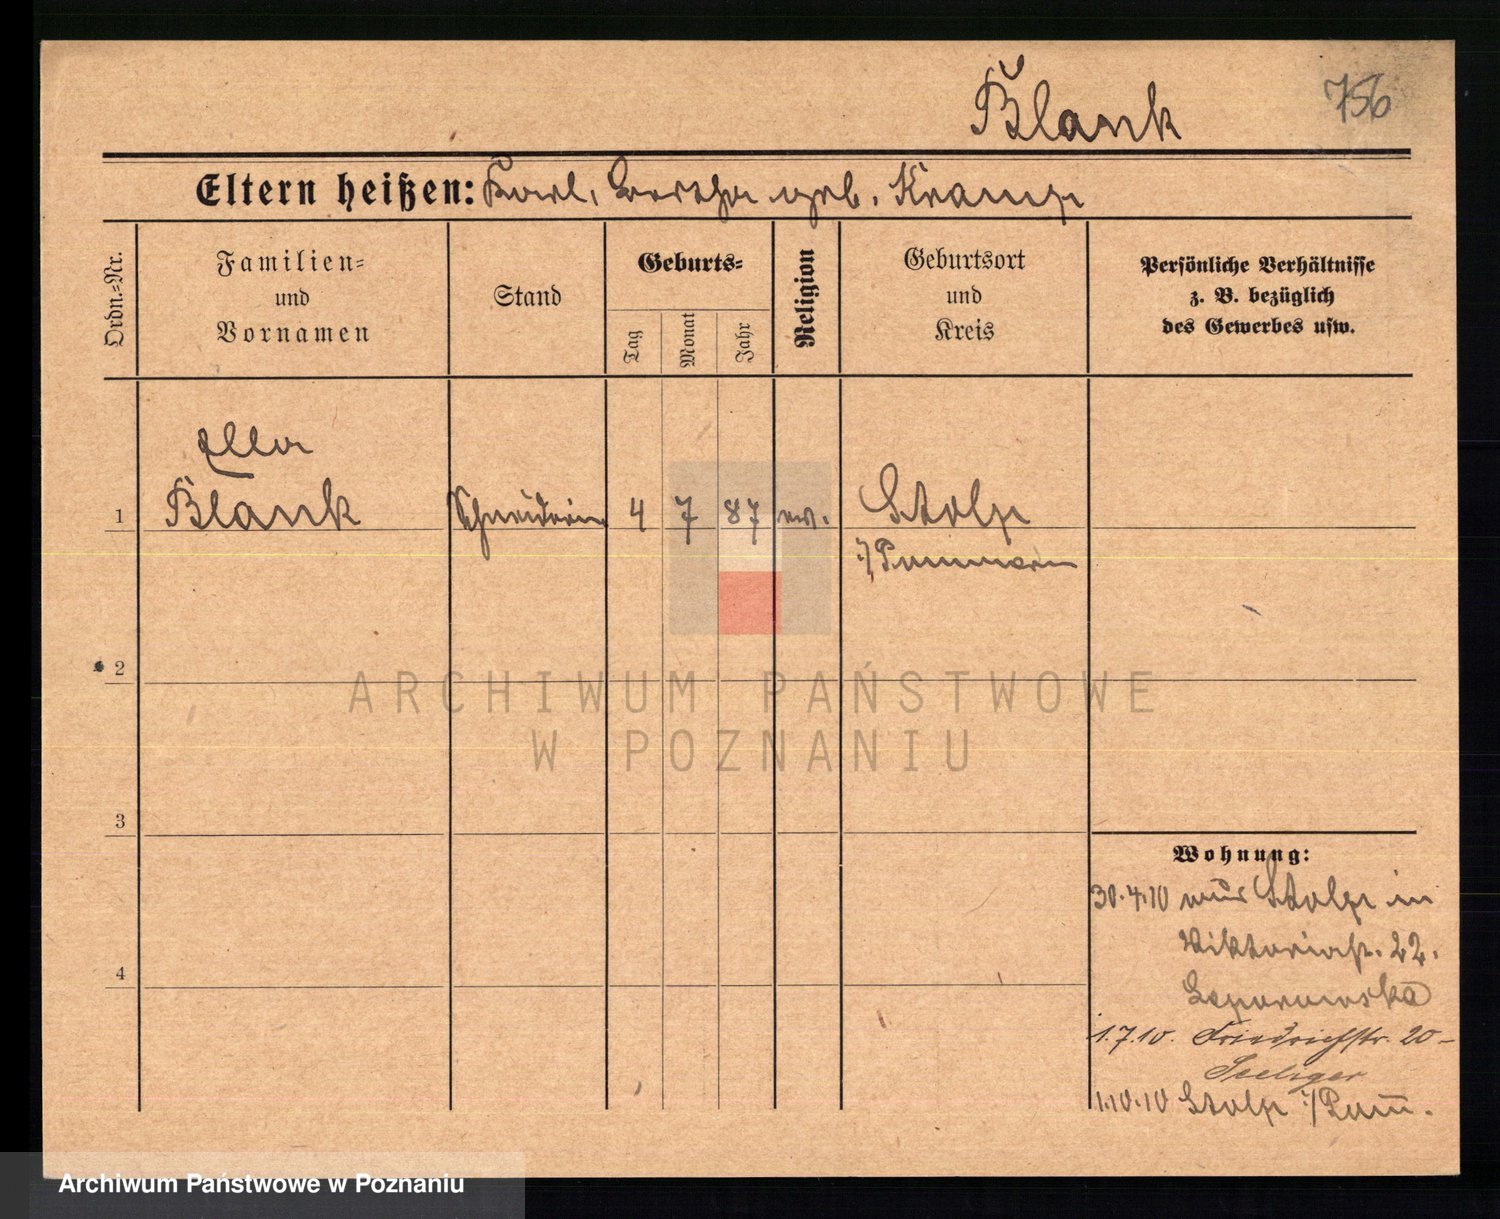 Blank 756
Eltern heißen: Karl, Bertha geb. Kramp
Ordn.-Nr.
Familien-
und
Vornamen
Stand
Geburts-
Tag
Monat
Jahr
Religion
Geburtsort
und
Kreis
Persönliche Verhältnisse
z. B. bezüglich
des Gewerbes usw.
Ella
1 Blank Schneiderin 4 7 87 ev. Stolp
i/Pommern
2
3
4
Wohnung:
30.4.10 aus Stolp in
Viktoriastr. 22.
1.7.10. Friedrichstr. 20-
Seeliger
1.10.10 Stolp i/Pom.
ARCHIWUM PAŃSTWOWE
W POZNANIU
Archiwum Państwowe w Poznaniu